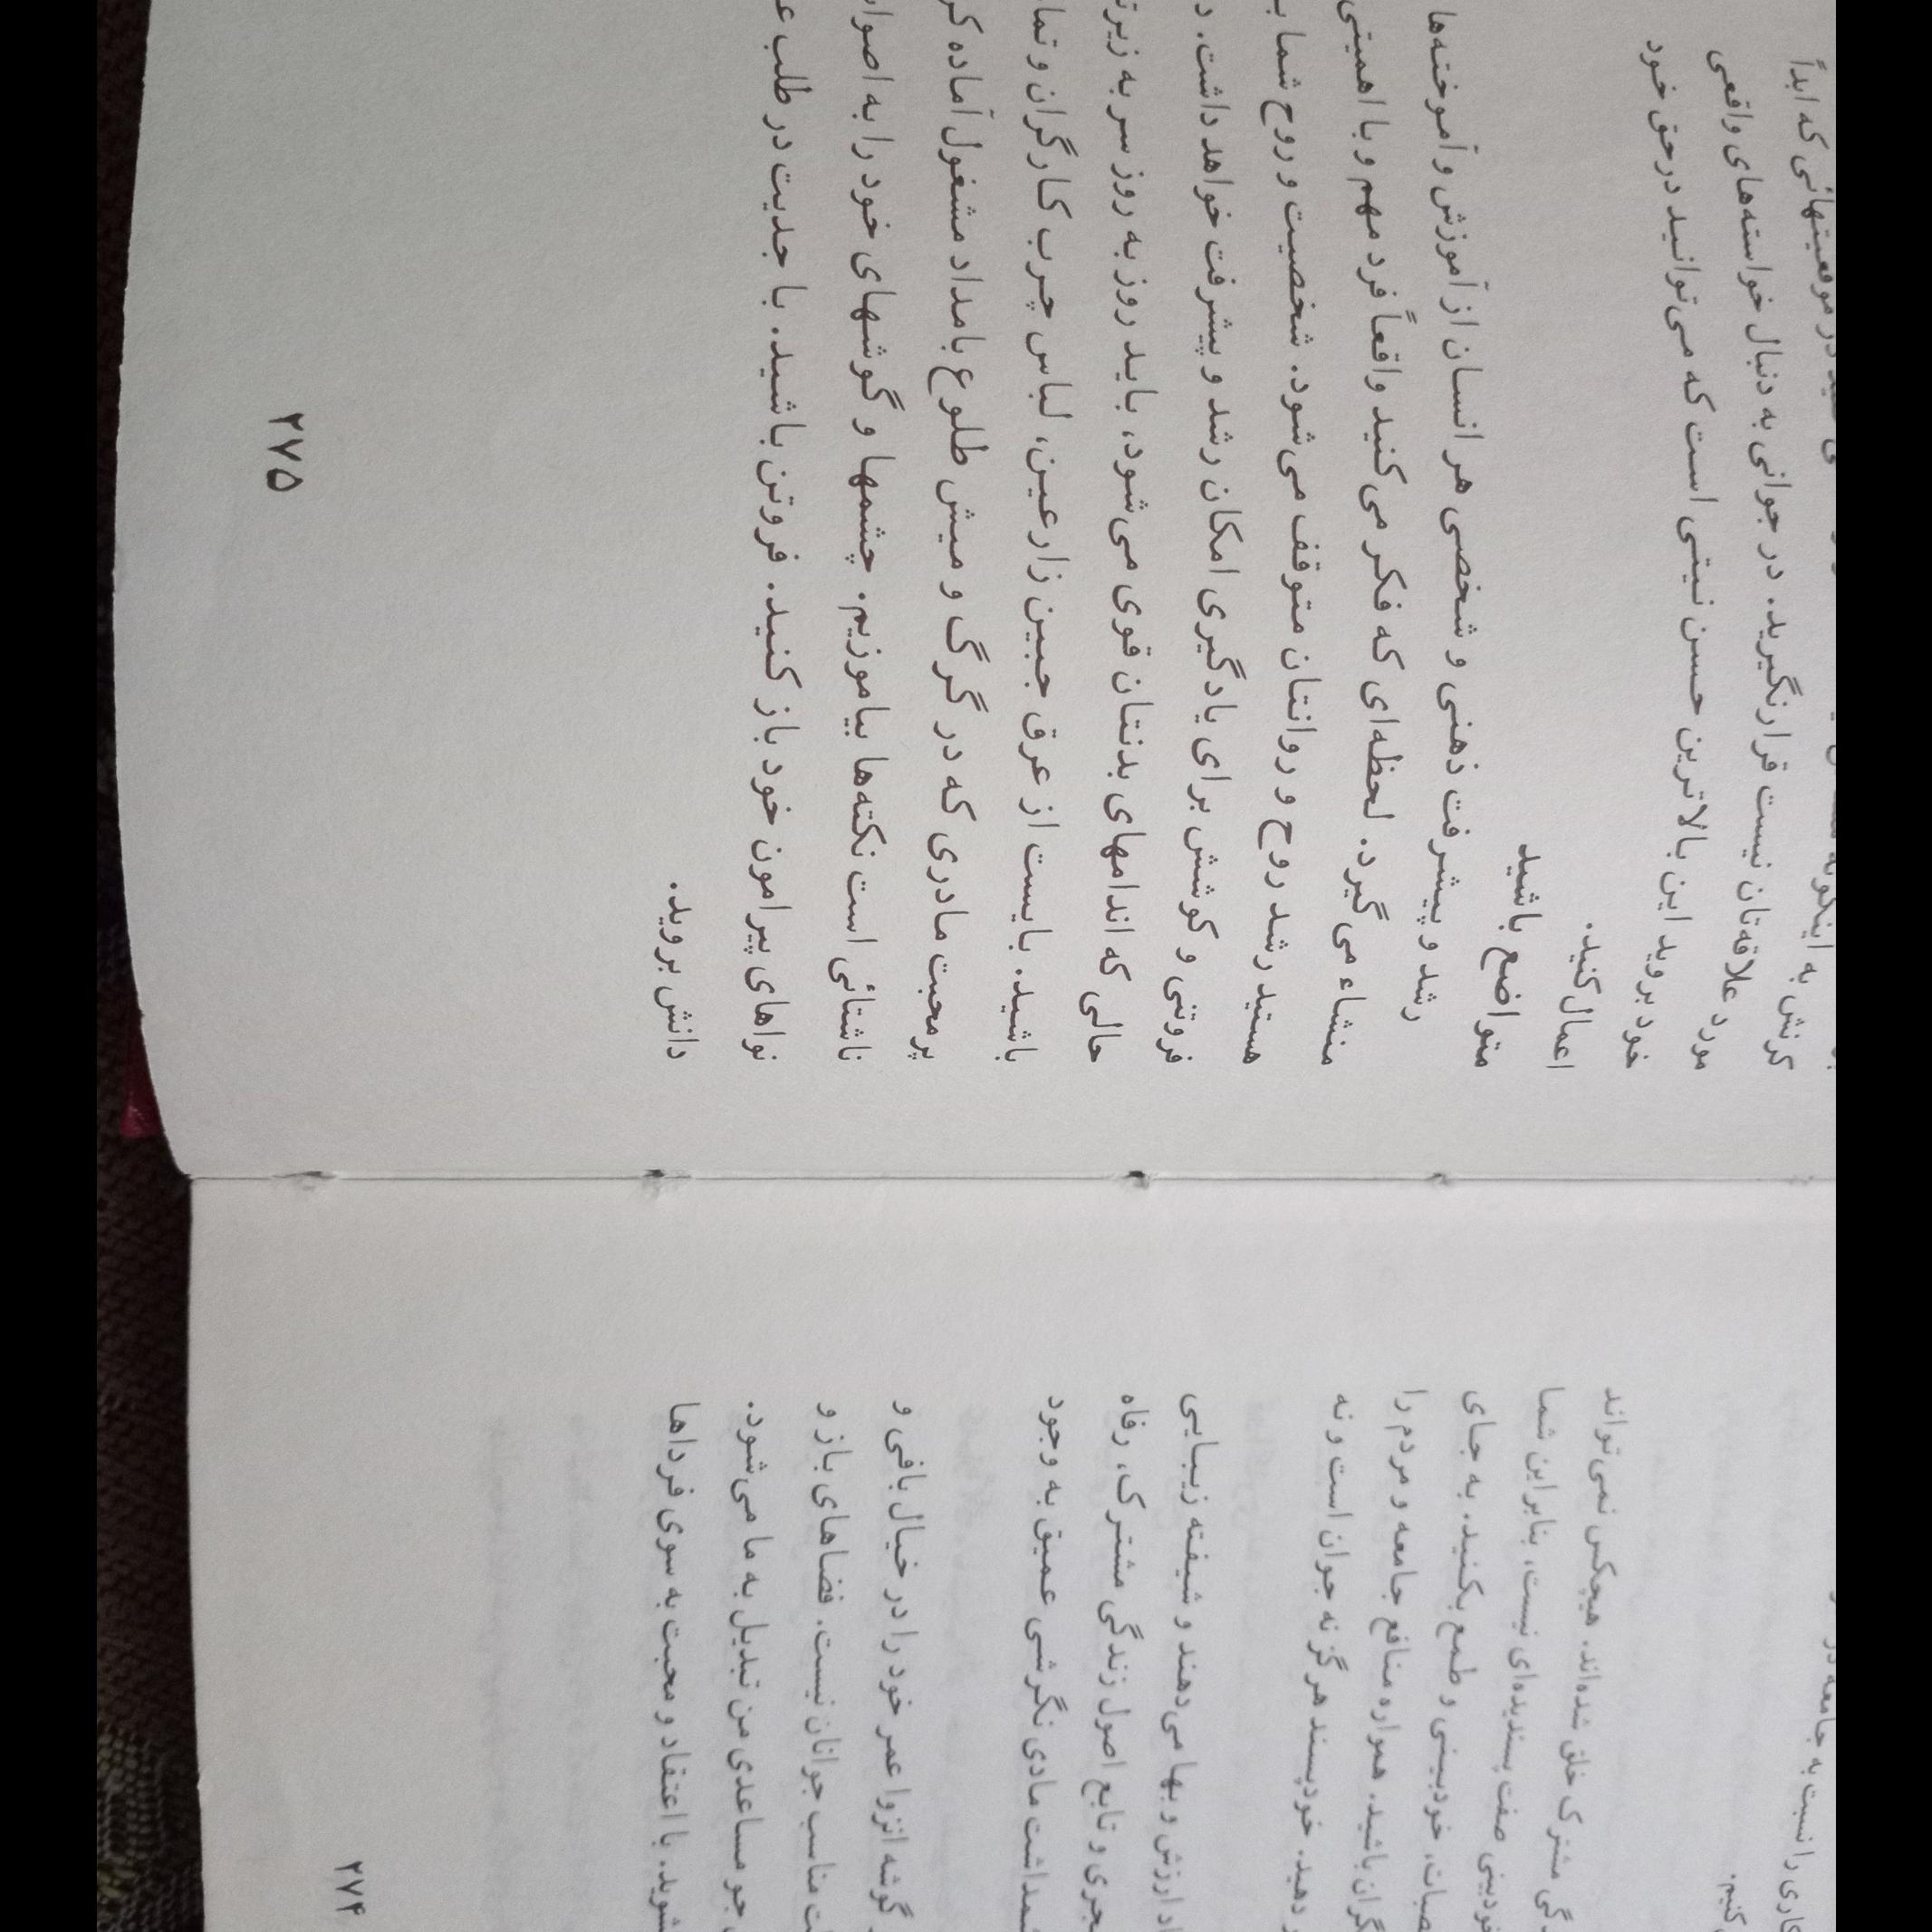 را نسبت به جامعه در
کنیم.
مشترک خلق شده‌اند. هیچکس نمی‌تواند
صفت پسندیده‌ای نیست، بنابراین شما
خودبینی و طمع بکنید. به جای
باشید. همواره منافع جامعه و مردم را
دهید. خودپسند هرگز نه جوان است و نه
ارزش و بها می‌دهند و شیفته زیبایی
و تابع اصول زندگی مشترک، رفاه
مادی نگرشی عمیق به وجود
گوشه انزوا عمر خود را در خیال بافی و
مناسب جوانان نیست. فضاهای باز و
جو مساعدی من تبدیل به ما می‌شود.
شوید. با اعتقاد و محبت به سوی فرداها
۲۷۴
در موقعیتهائی که ابداً
کرنش به اینگونه
مورد علاقه‌تان نیست قرار نگیرید. در جوانی به دنبال خواسته‌های واقعی
خود بروید این بالاترین حسن نیتی است که می‌توانید درحق خود
اعمال کنید.
متواضع باشید
رشد و پیشرفت ذهنی و شخصی هر انسان از آموزش و آموخته‌ها
منشاء می‌گیرد. لحظه‌ای که فکر می‌کنید واقعاً فرد مهم و با اهمیتی
هستید رشد روح و روانتان متوقف می‌شود. شخصیت و روح شما
فروتنی و کوشش برای یادگیری امکان رشد و پیشرفت خواهد داشت.
حالی که اندامهای بدنتان قوی می‌شود، باید روز به روز سر به زیرتر
باشید. بایست از عرق جبین زارعین، لباس چرب کارگران و
پر محبت مادری که در گرگ و میش طلوع بامداد مشغول آماده
ناشتائی است نکته‌ها بیاموزیم. چشمها و گوشهای خود را به
نواهای پیرامون خود باز کنید. فروتن باشید. با جدیت در طلب
دانش بروید.
۲۷۵